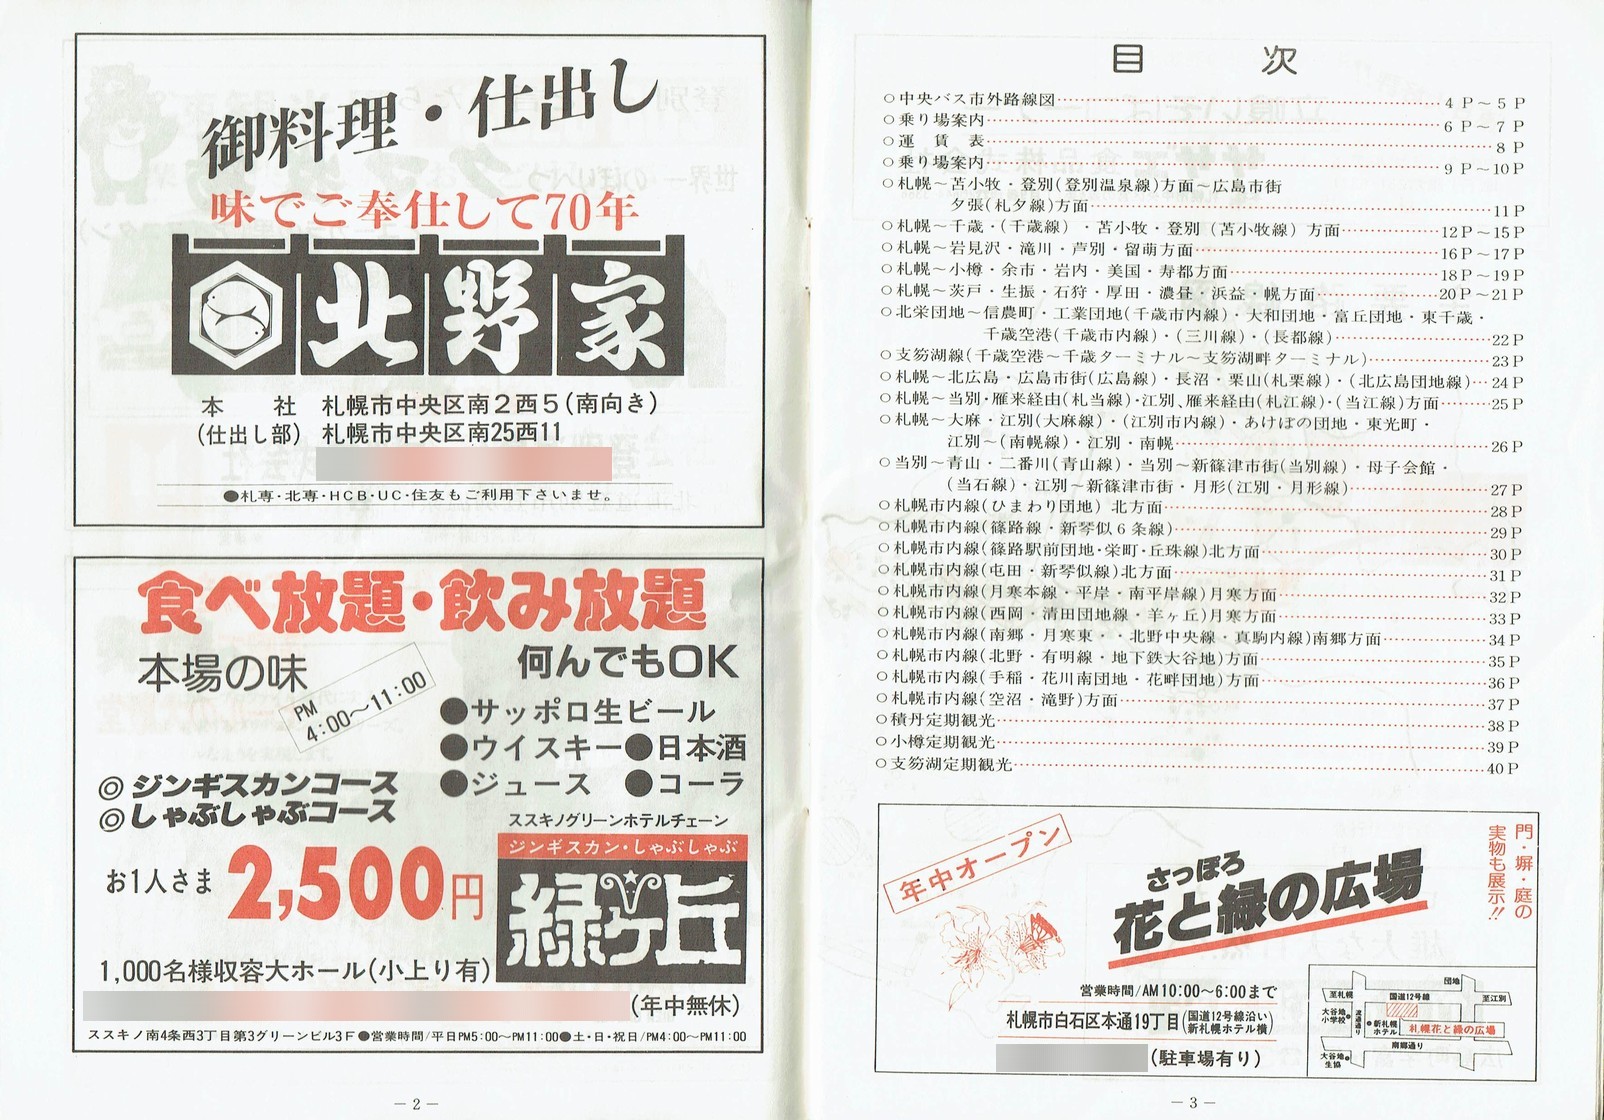 御料理・仕出し
味でご奉仕して70年
北野家
本　社　札幌市中央区南2西5(南向き)
(仕出し部)　札幌市中央区南25西11
●札専・北専・HCB・UC・住友もご利用下さいませ。
食べ放題・飲み放題
本場の味
何んでもOK
PM
4:00〜11:00
●サッポロ生ビール
●ウイスキー●日本酒
●ジュース　●コーラ
◎ジンギスカンコース
◎しゃぶしゃぶコース
ススキノグリーンホテルチェーン
ジンギスカン・しゃぶしゃぶ
緑ヶ丘
お1人さま 2,500円
1,000名様収容大ホール(小上り有)
(年中無休)
ススキノ南4条西3丁目第3グリーンビル3F●営業時間/平日PM5:00〜PM11:00●土・日・祝日/PM4:00〜PM11:00
— 2 —
目　次
○中央バス市外路線図……4P〜5P
○乗り場案内……6P〜7P
○運　賃　表……8P
○乗り場案内……9P〜10P
○札幌〜苫小牧・登別(登別温泉線)方面〜広島市街
夕張(札夕線)方面……11P
○札幌〜千歳・(千歳線)・苫小牧・登別(苫小牧線)方面……12P〜15P
○札幌〜岩見沢・滝川・芦別・留萌方面……16P〜17P
○札幌〜小樽・余市・岩内・美国・寿都方面……18P〜19P
○札幌〜茨戸・生振・石狩・厚田・濃昼・浜益・幌方面……20P〜21P
○北栄団地〜信濃町・工業団地(千歳市内線)・大和団地・富丘団地・東千歳・
千歳空港(千歳市内線)・(三川線)・(長都線)……22P
○支笏湖線(千歳空港〜千歳ターミナル〜支笏湖畔ターミナル)……23P
○札幌〜北広島・広島市街(広島線)・長沼・栗山(札栗線)・(北広島団地線)…24P
○札幌〜当別・雁来経由(札当線)・江別、雁来経由(札江線)・(当江線)方面……25P
○札幌〜大麻・江別(大麻線)・(江別市内線)・あけぼの団地・東光町・
江別〜(南幌線)・江別・南幌……26P
○当別〜青山・二番川(青山線)・当別〜新篠津市街(当別線)・母子会館・
(当石線)・江別〜新篠津市街・月形(江別・月形線)……27P
○札幌市内線(ひまわり団地)北方面……28P
○札幌市内線(篠路線・新琴似6条線)……29P
○札幌市内線(篠路駅前団地・栄町・丘珠線)北方面……30P
○札幌市内線(屯田・新琴似線)北方面……31P
○札幌市内線(月寒本線・平岸・南平岸線)月寒方面……32P
○札幌市内線(西岡・清田団地線・羊ヶ丘)月寒方面……33P
○札幌市内線(南郷・月寒東・・北野中央線・真駒内線)南郷方面……34P
○札幌市内線(北野・有明線・地下鉄大谷地)方面……35P
○札幌市内線(手稲・花川南団地・花畔団地)方面……36P
○札幌市内線(空沼・滝野)方面……37P
○積丹定期観光……38P
○小樽定期観光……39P
○支笏湖定期観光……40P
年中オープン
さっぽろ
花と緑の広場
門・塀・庭の
実物も展示!!
営業時間/AM10:00〜6:00まで
札幌市白石区本通19丁目(国道12号線沿い
新札幌ホテル横)
(駐車場有り)
団地
至札幌
国道12号線
至江別
大谷地
小学校
流通通り
新札幌
ホテル
札幌花と緑の広場
南郷通り
大谷地
生協
— 3 —